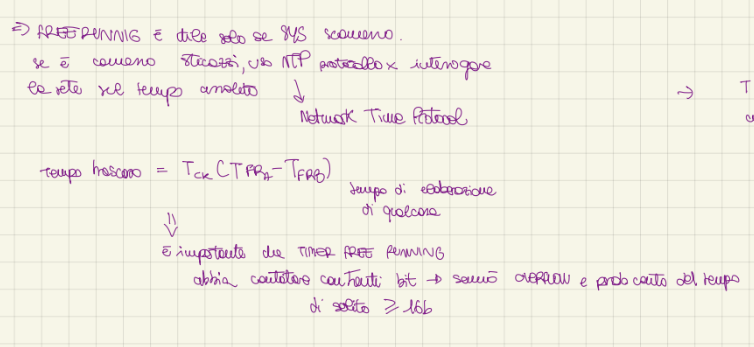 => FREE RUNNIG È utile solo se SYS sconneno.
se è conneno sticazzi, uso NTP protocollo x interrogare
la rete sul tempo assoluto ↓ →
Network Time Protocol
T
tempo trascorso = TCK (TFRA - TFRB)
tempo di elaborazione
di qualcosa
⇓
È importante che TIMER FREE RUNNING
abbia contatore con tanti bit → sennò OVERFLOW e prob conto del tempo
di solito ≥ 16b